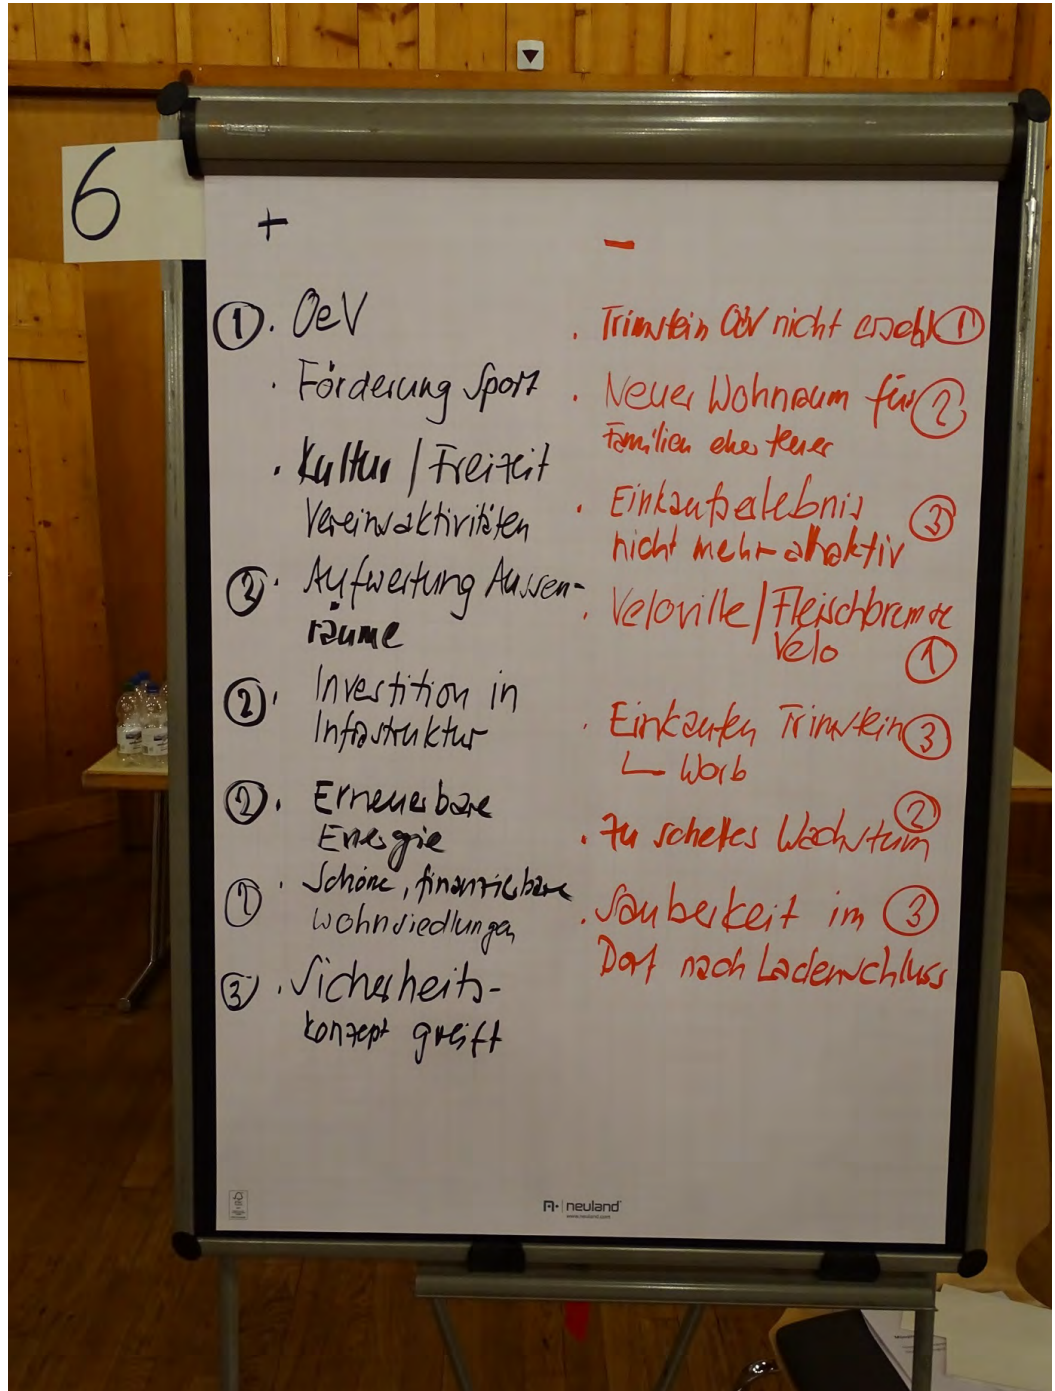 6
+
① · OeV
· Förderung Sport
· Kultur / Freizeit
Vereinsaktivitäten
③ · Aufwertung Aussen-
räume
② · Investition in
Infrastruktur
② · Erneuerbare
Energie
① · Schöne, finanzierbare
Wohnsiedlungen
③ · Sicherheits-
konzept greift
–
· Trimstein OeV nicht ①
· Neuer Wohnraum für ②
Familien eher teuer
· Einkaufserlebnis ③
nicht mehr attraktiv
· Veloville / Fleischbremse
Velo ①
· Einkaufen Trimstein ③
↳ Worb
· Zu schelles Wachstum ②
· Sauberkeit im ③
Dorf nach Ladenschluss
neuland
www.neuland.com